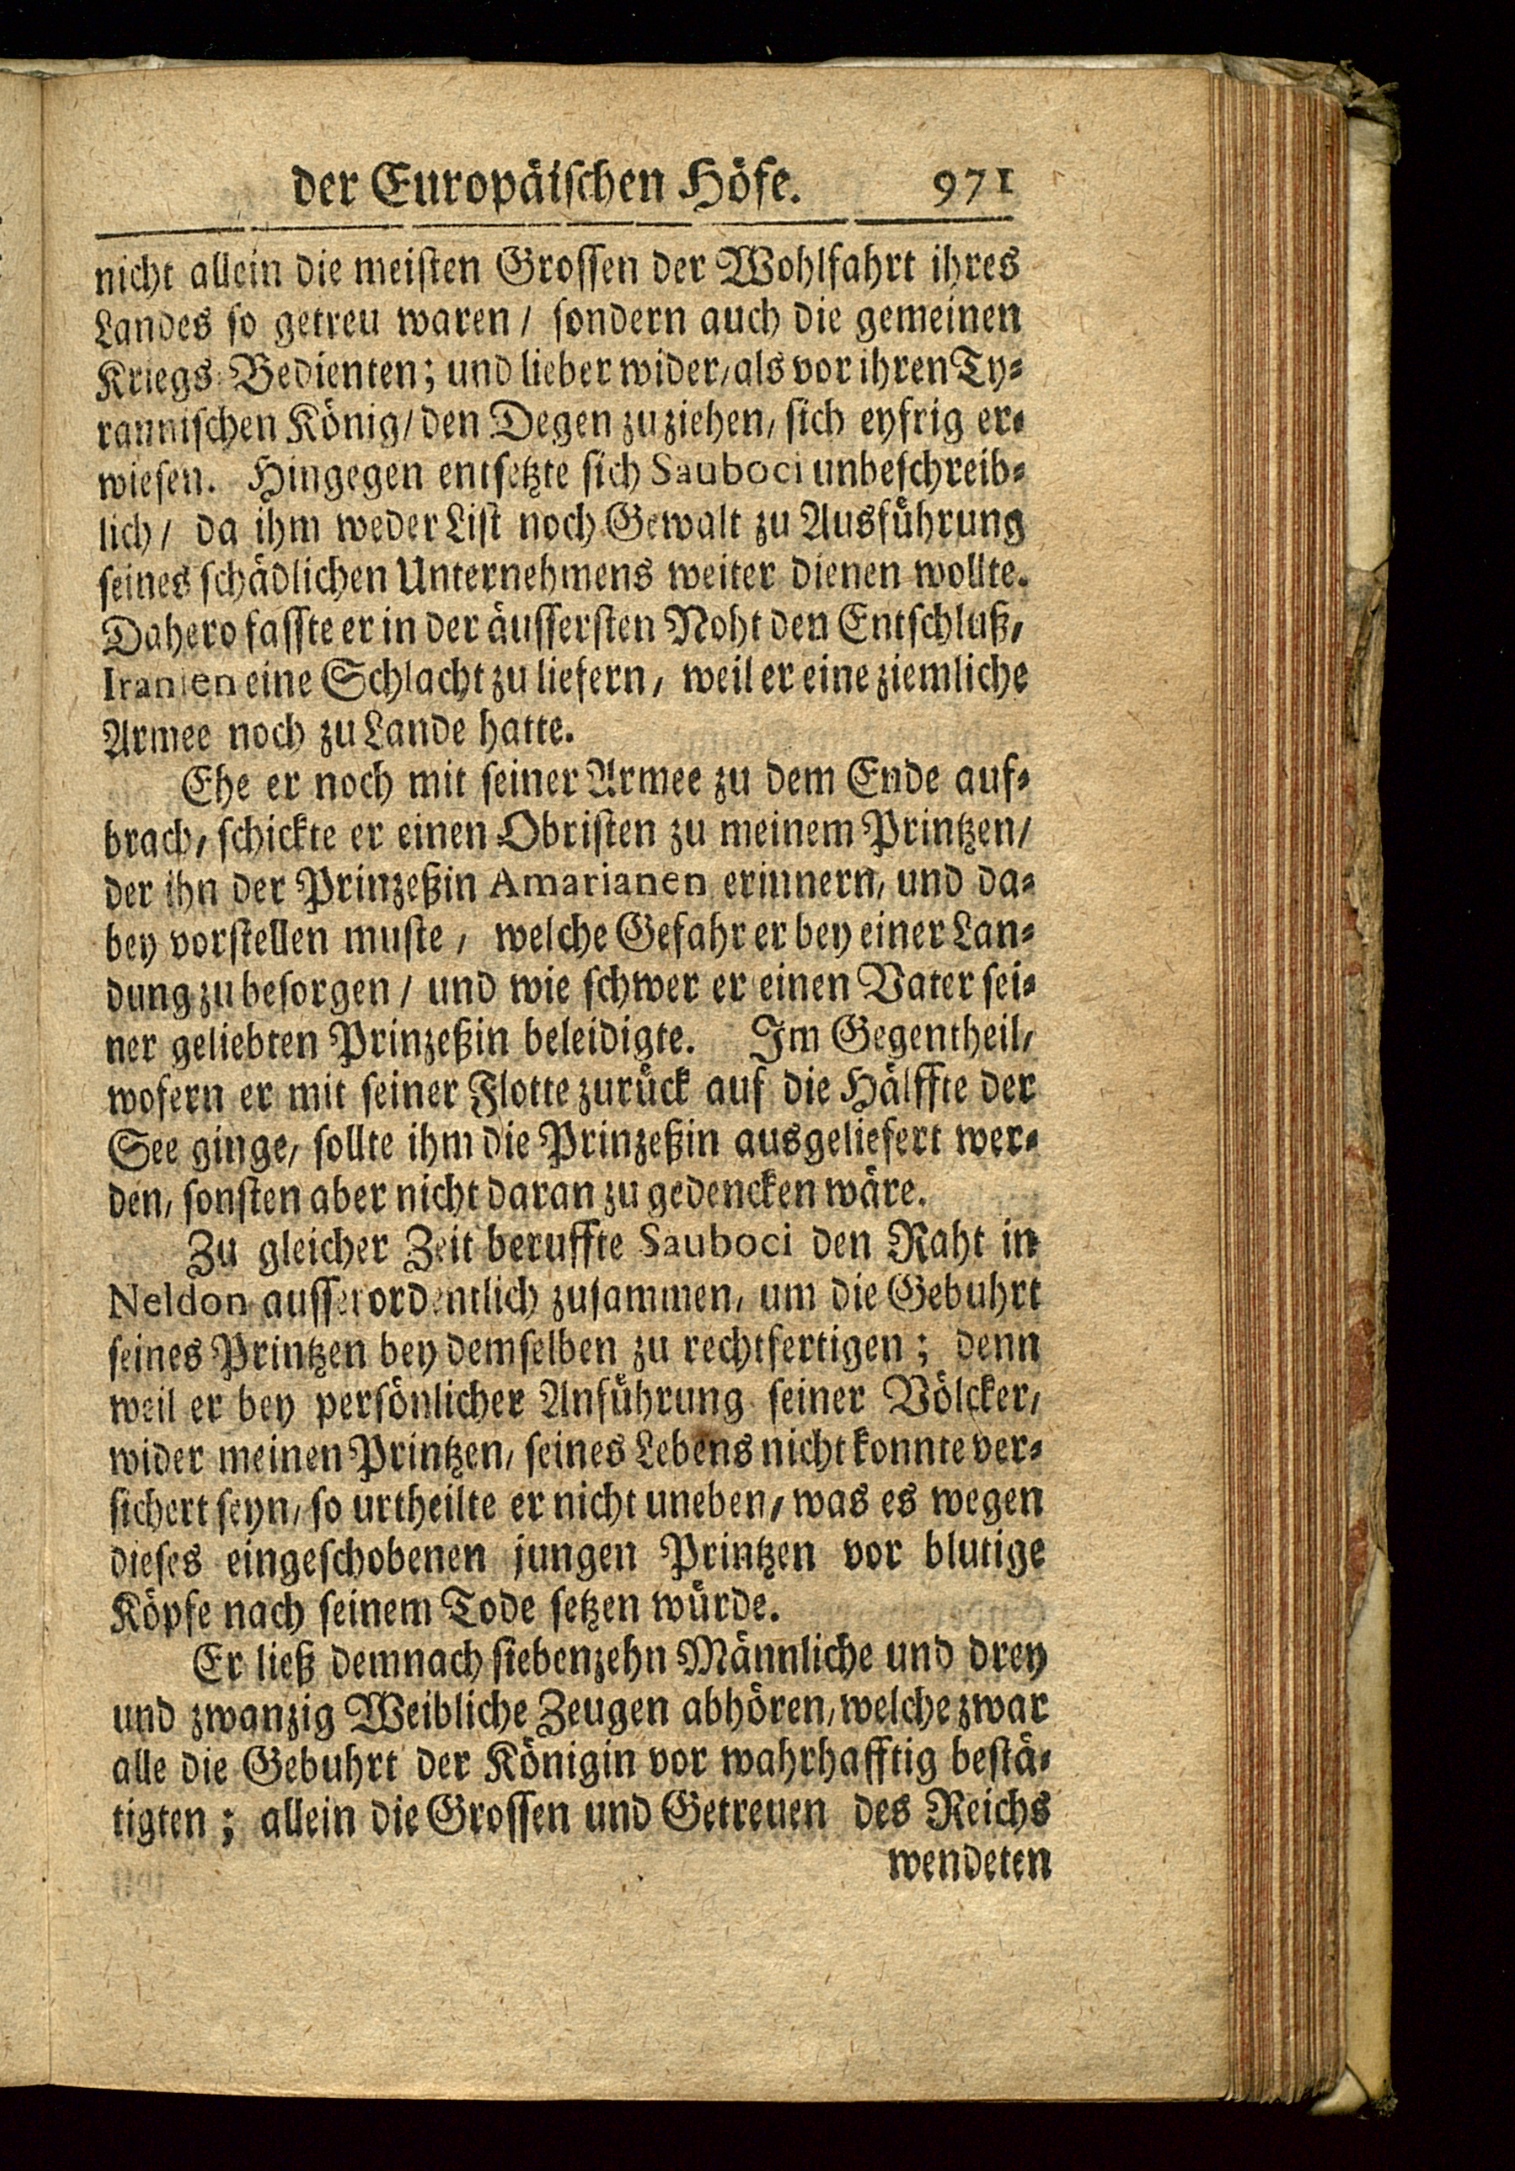 der Europäischen Höfe. 971
nicht allein die meisten Grossen der Wohlfahrt ihres
Landes so getreu waren / sondern auch die gemeinen
Kriegs-Bedienten; und lieber wider/als vor ihren Ty-
rannischen König/den Degen zu ziehen/ sich eyfrig er-
wiesen. Hingegen entsetzte sich Sauboci unbeschreib-
lich/ da ihm weder List noch Gewalt zu Ausführung
seines schädlichen Unternehmens weiter dienen wollte.
Dahero fasste er in der äussersten Noht den Entschluß/
Iranien eine Schlacht zu liefern/ weil er eine ziemliche
Armee noch zu Lande hatte.
Ehe er noch mit seiner Armee zu dem Ende auf-
brach/ schickte er einen Obristen zu meinem Printzen/
der ihn der Prinzeßin Amarianen erinnern/ und da-
bey vorstellen muste / welche Gefahr er bey einer Lan-
dung zu besorgen / und wie schwer er einen Vater sei-
ner geliebten Prinzeßin beleidigte. Im Gegentheil/
wofern er mit seiner Flotte zurück auf die Hälffte der
See ginge/ sollte ihm die Prinzeßin ausgeliefert wer-
den/ sonsten aber nicht daran zu gedencken wäre.
Zu gleicher Zeit beruffte Sauboci den Raht in
Neldon ausserordentlich zusammen/ um die Gebuhrt
seines Printzen bey demselben zu rechtfertigen; denn
weil er bey persönlicher Anführung seiner Völcker/
wider meinen Printzen/ seines Lebens nicht konnte ver-
sichert seyn/ so urtheilte er nicht uneben/ was es wegen
dieses eingeschobenen jungen Printzen vor blutige
Köpfe nach seinem Tode setzen würde.
Er ließ demnach siebenzehn Männliche und drey
und zwanzig Weibliche Zeugen abhören/welche zwar
alle die Gebuhrt der Königin vor wahrhafftig bestä-
tigten; allein die Grossen und Getreuen des Reichs
wendeten